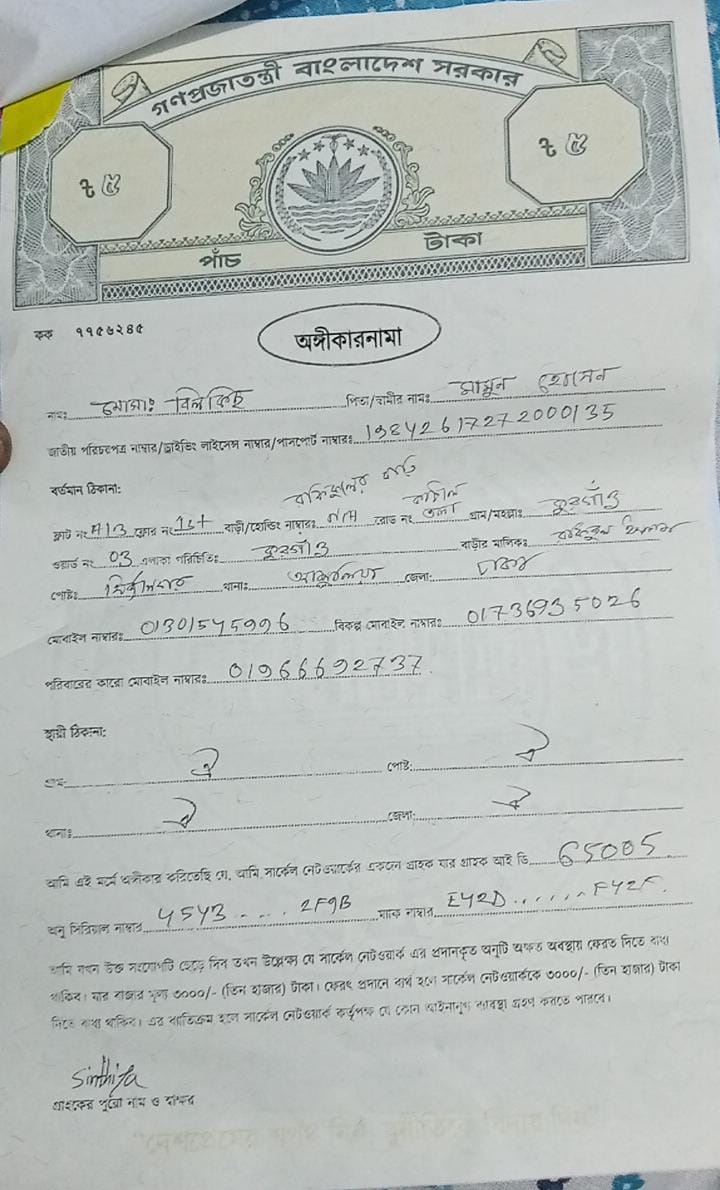 গণপ্রজাতন্ত্রী বাংলাদেশ সরকার
৳ ৫
৳ ৫
পাঁচ টাকা
কক ৭৭৫৬২৪৫
অঙ্গীকারনামা
নামঃ মোসাঃ বিলকিছ পিতা/স্বামীর নামঃ মামুন হোসেন
জাতীয় পরিচয়পত্র নাম্বার/ড্রাইভিং লাইসেন্স নাম্বার/পাসপোর্ট নাম্বারঃ 19842617272000135
বর্তমান ঠিকানা:
ফ্লাট নং A13 ফ্লোর নং 1st বাড়ী/হোল্ডিং নাম্বারঃ N/A রোড নং গ্রাম/মহল্লাঃ কুরগাঁও
ওয়ার্ড নং 03 এলাকা পরিচিতিঃ কুরগাঁও বাড়ীর মালিকঃ রফিকুল ইসলাম
পোষ্টঃ থানাঃ জেলা: ঢাকা
মোবাইল নাম্বারঃ 01301545996 বিকল্প মোবাইল নাম্বারঃ 01736935026
পরিবারের কারো মোবাইল নাম্বারঃ 01966692737
স্থায়ী ঠিকানা:
ঐ পোষ্ট: ঐ
থানাঃ ঐ জেলা: ঐ
আমি এই মর্মে অঙ্গীকার করিতেছি যে, আমি সার্কেল নেটওয়ার্কের একজন গ্রাহক যার গ্রাহক আই ডি 65005
অনু সিরিয়াল নাম্বার 4543.... 2F9B ম্যাক নাম্বার E42D......F42F.
আমি যখন উক্ত সংযোগটি ছেড়ে দিব তখন উল্লেক্ষ্য যে সার্কেল নেটওয়ার্ক এর প্রদানকৃত অনুটি অক্ষত অবস্থায় ফেরত দিতে বাধ্য
থাকিব। যার বাজার মূল্য ৩০০০/- (তিন হাজার) টাকা। ফেরৎ প্রদানে ব্যর্থ হলে সার্কেল নেটওয়ার্ককে ৩০০০/- (তিন হাজার) টাকা
দিতে বাধ্য থাকিব। এর ব্যতিক্রম হলে সার্কেল নেটওয়ার্ক কর্তৃপক্ষ যে কোন আইনানুগ ব্যবস্থা গ্রহণ করতে পারবে।
Sinthiya
গ্রাহকের পুরো নাম ও স্বাক্ষর